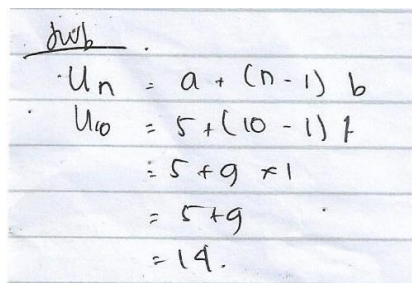 Jwb
Un = a + (n - 1) b
U10 = 5 + (10 - 1) 1
= 5 + 9 × 1
= 5 + 9
= 14.